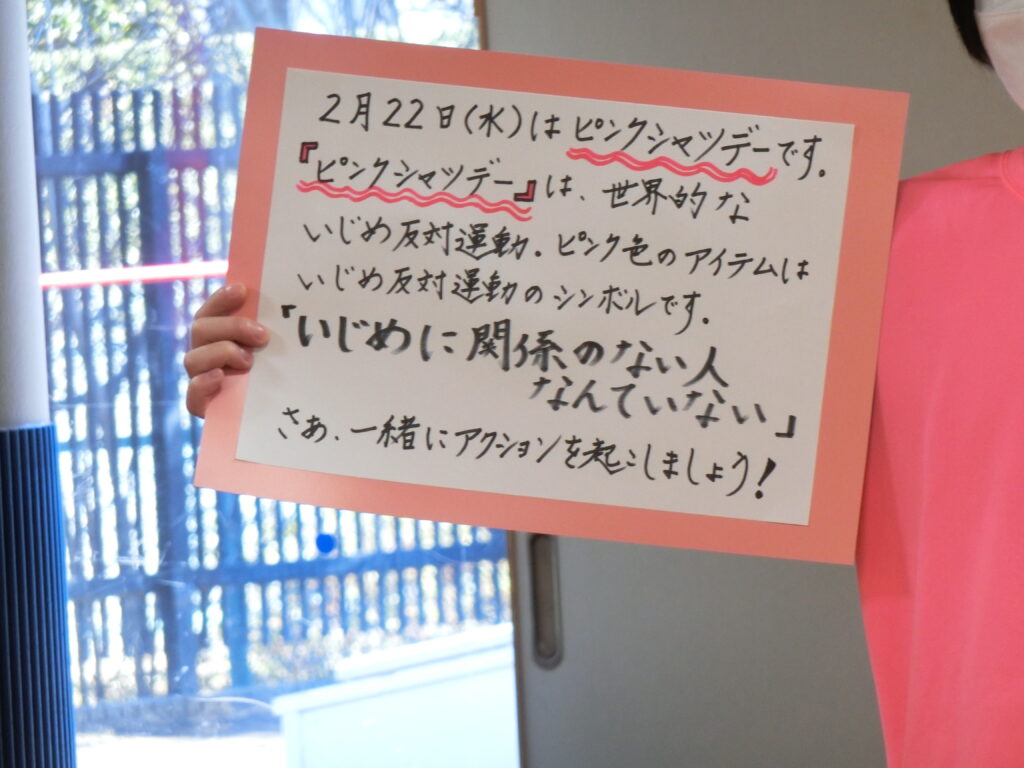 2月22日(水)はピンクシャツデーです。
『ピンクシャツデー』は、世界的な
いじめ反対運動。ピンク色のアイテムは
いじめ反対運動のシンボルです。
「いじめに関係のない人
なんていない」
さぁ、一緒にアクションを起こしましょう!